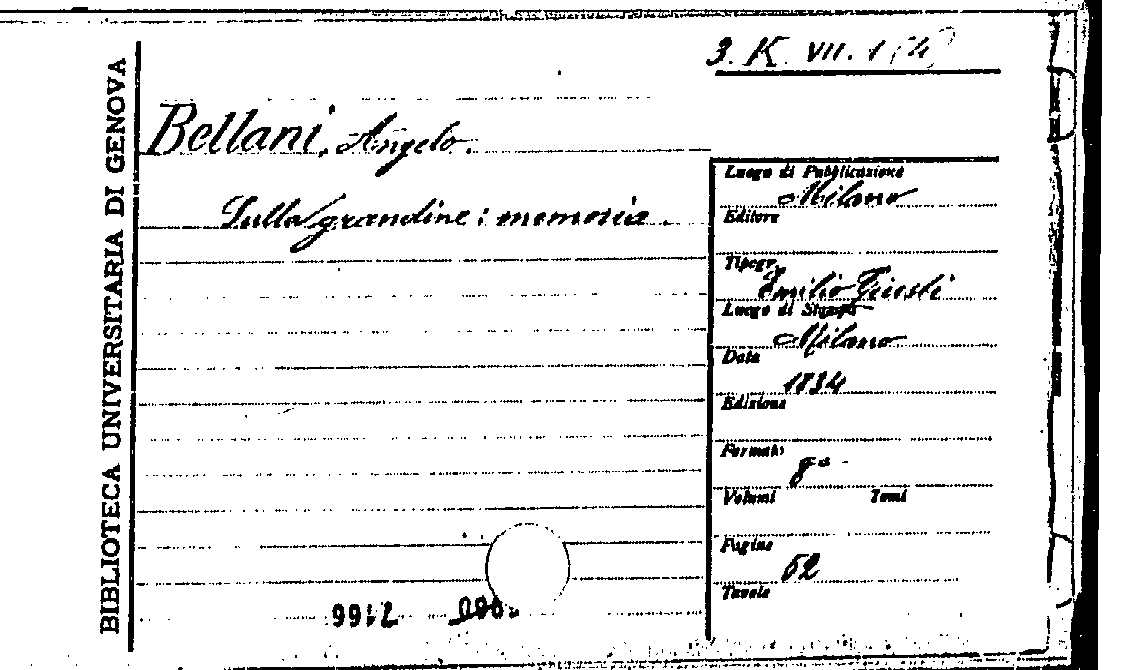 3. K. VII. 1 (4)
BIBLIOTECA UNIVERSITARIA DI GENOVA
Bellani, Angelo.
Sulla grandine: memoria.
Luogo di Pubblicazione
Milano
Editore
Tipogr.
Emilio Giusti
Luogo di Stampa
Milano
Data
1834
Edizione
Formato
8°
Volumi Tomi
Pagine
52
Tavole